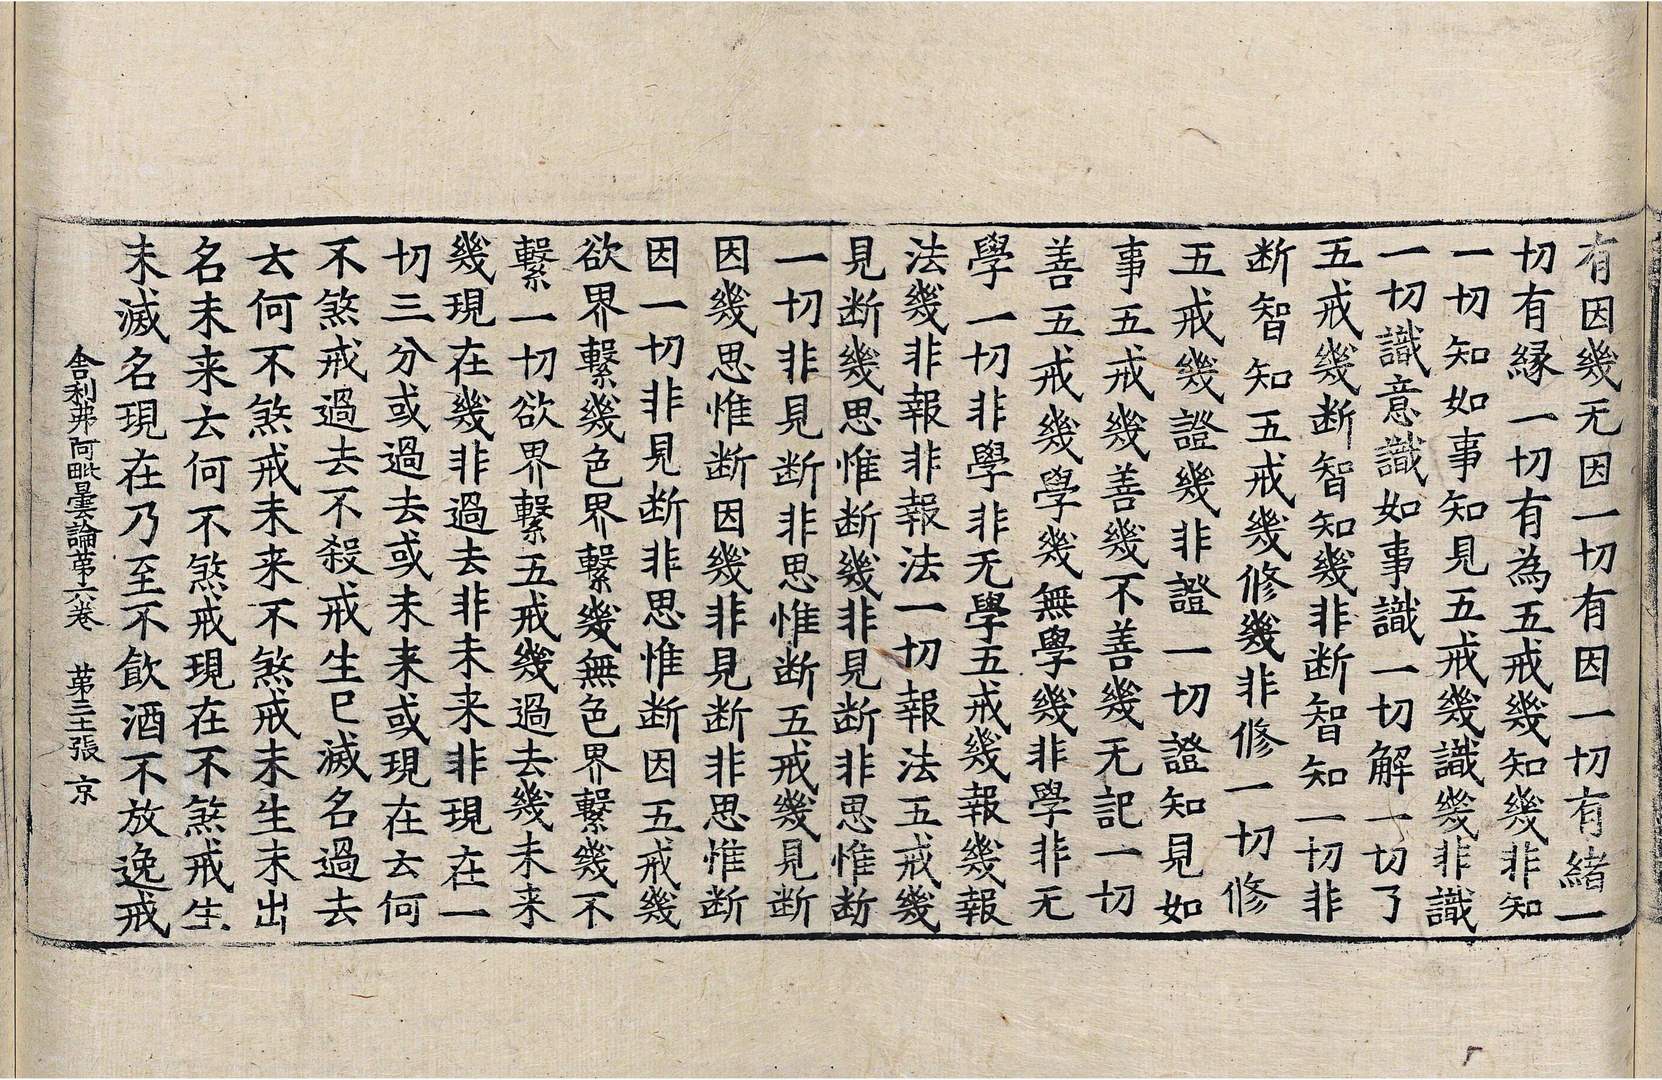 有因幾无因一切有因一切有緒一
切有緣一切有為五戒幾知幾非知
一切知如事知見五戒幾識幾非識
一切識意識如事識一切解一切了
五戒幾断智知幾非断智知一切非
断智知五戒幾修幾非修一切修
五戒幾證幾非證一切證知見如
事五戒幾善幾不善幾无記一切
善五戒幾學幾無學幾非學非无
學一切非學非无學五戒幾報幾報
法幾非報非報法一切報法五戒幾
見断幾思惟断幾非見断非思惟断
一切非見断非思惟断五戒幾見断
因幾思惟断因幾非見断非思惟断
因一切非見断非思惟断因五戒幾
欲界繫幾色界繫幾無色界繫幾不
繫一切欲界繫五戒幾過去幾未来
幾現在幾非過去非未来非現在一
切三分或過去或未来或現在云何
不煞戒過去不殺戒生已滅名過去
云何不煞戒未来不煞戒未生未出
名未来云何不煞戒現在不煞戒生
未滅名現在乃至不飲酒不放逸戒
舍利弗阿毗曇論苐六卷 苐三十張 京